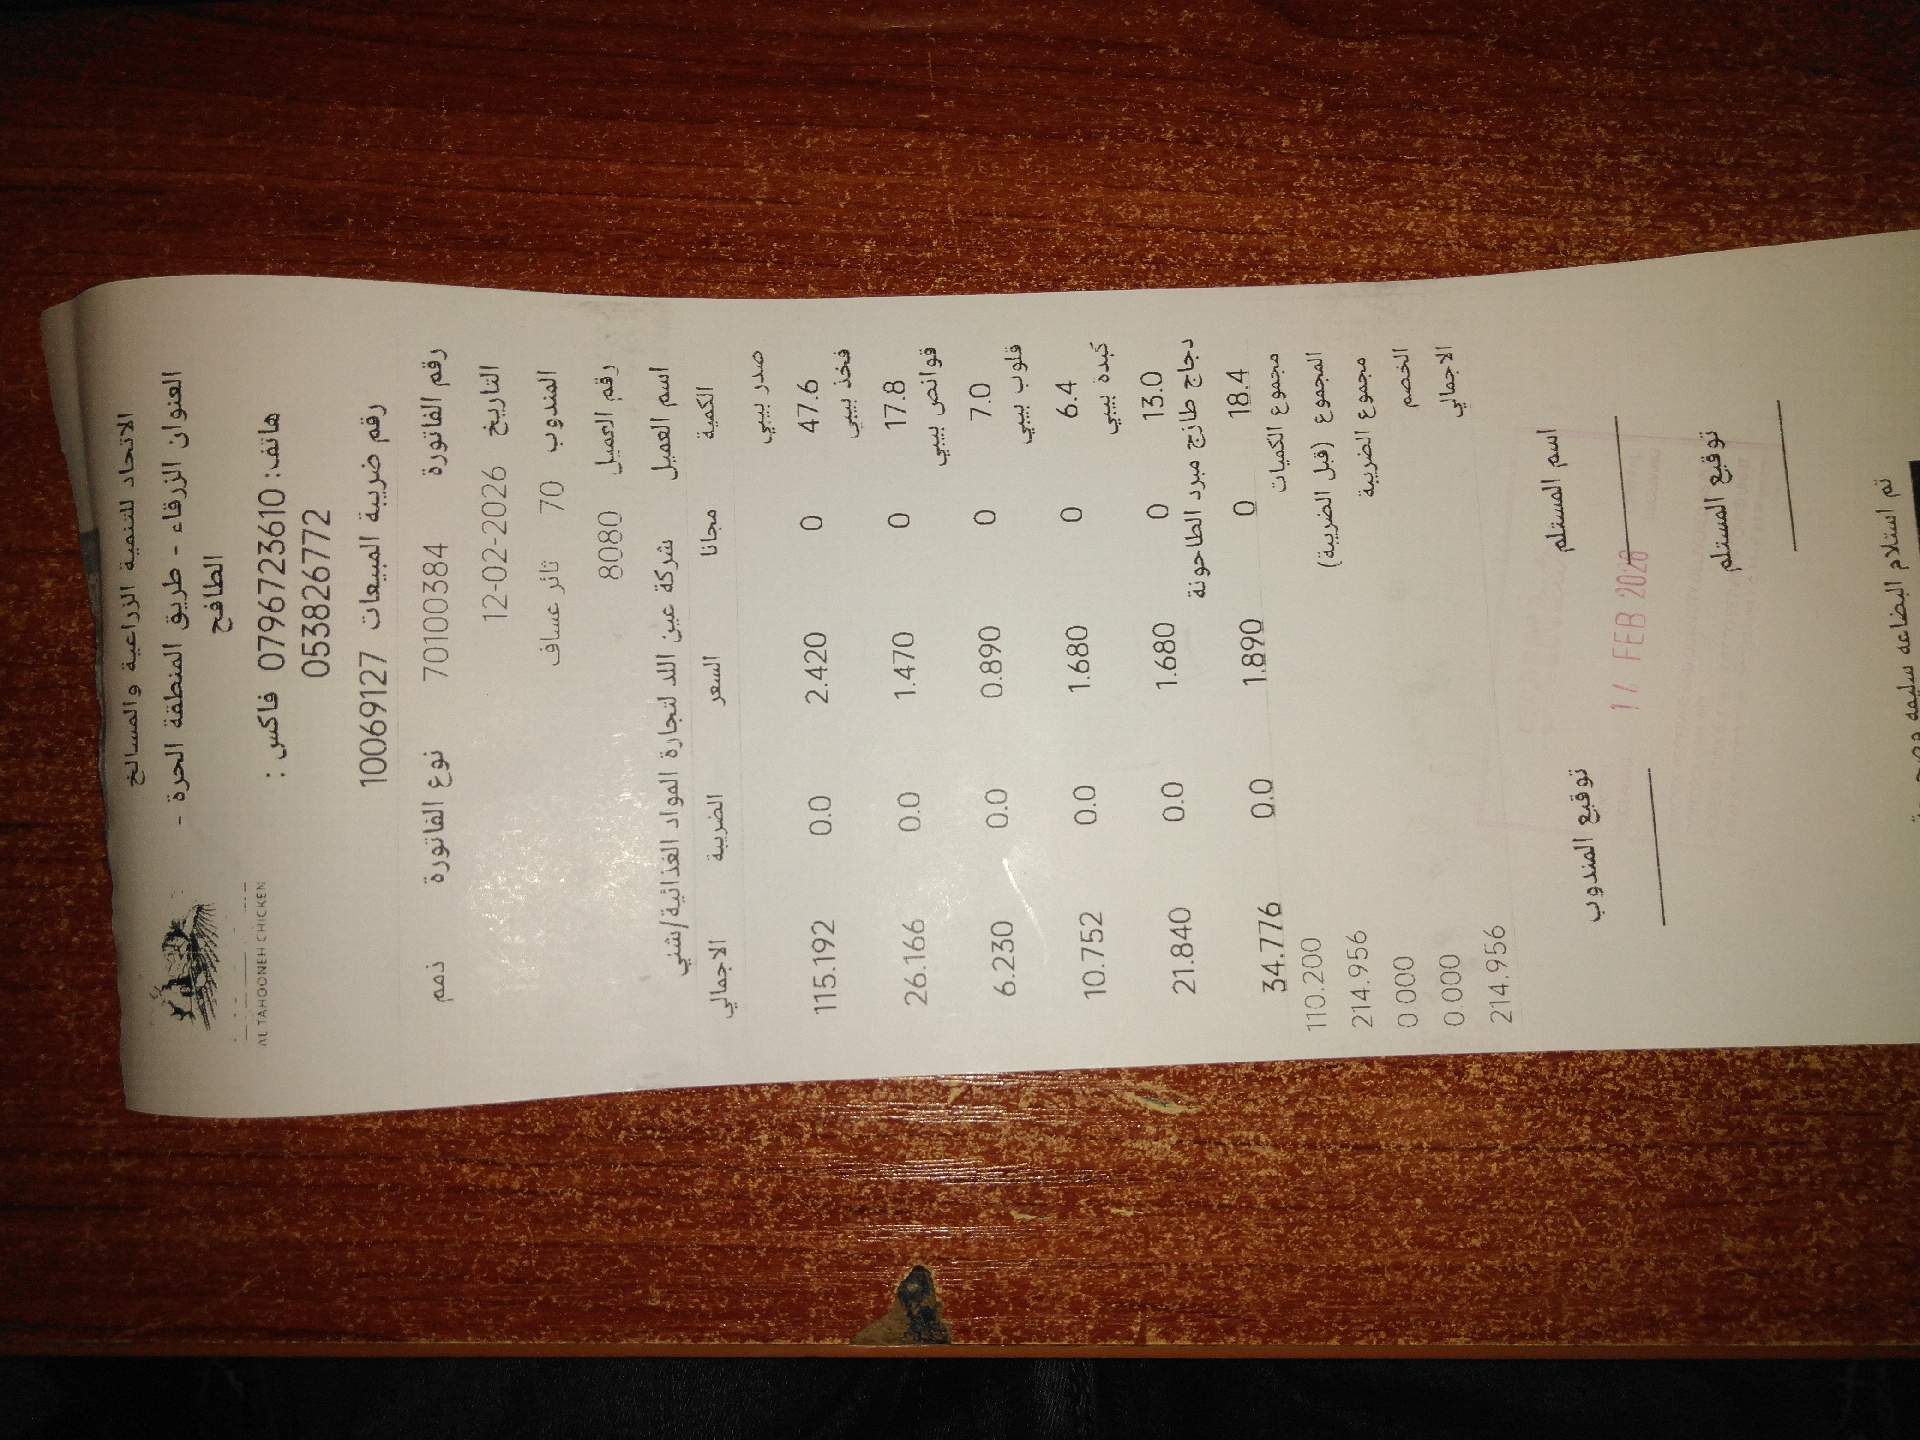 الاتحاد للتنمية الزراعية والمسالخ
العنوان الزرقاء - طريق المنطقة الحرة -
الطافح
هاتف: 0796723610 فاكس :
053826772
رقم ضريبة المبيعات 10069127
AL TAHOONEH CHICKEN
رقم الفاتورة 70100384 نوع الفاتورة ذمم
التاريخ 12-02-2026
المندوب 70 ثائر عساف
رقم العميل 8080
اسم العميل شركة عين اللد لتجارة المواد الغذائية/شني
الكمية مجانا السعر الضريبة الاجمالي
صدر بيبي
47.6 0 2.420 0.0 115.192
فخذ بيبي
17.8 0 1.470 0.0 26.166
قوانص بيبي
7.0 0 0.890 0.0 6.230
قلوب بيبي
6.4 0 1.680 0.0 10.752
كبدة بيبي
13.0 0 1.680 0.0 21.840
دجاج طازج مبرد الطاحونة
18.4 0 1.890 0.0 34.776
مجموع الكميات 110.200
المجموع (قبل الضريبة) 214.956
مجموع الضريبة 0.000
الخصم 0.000
الاجمالي 214.956
اسم المستلم توقيع المندوب
FEB 2026
توقيع المستلم
تم استلام البضاعه سليمه